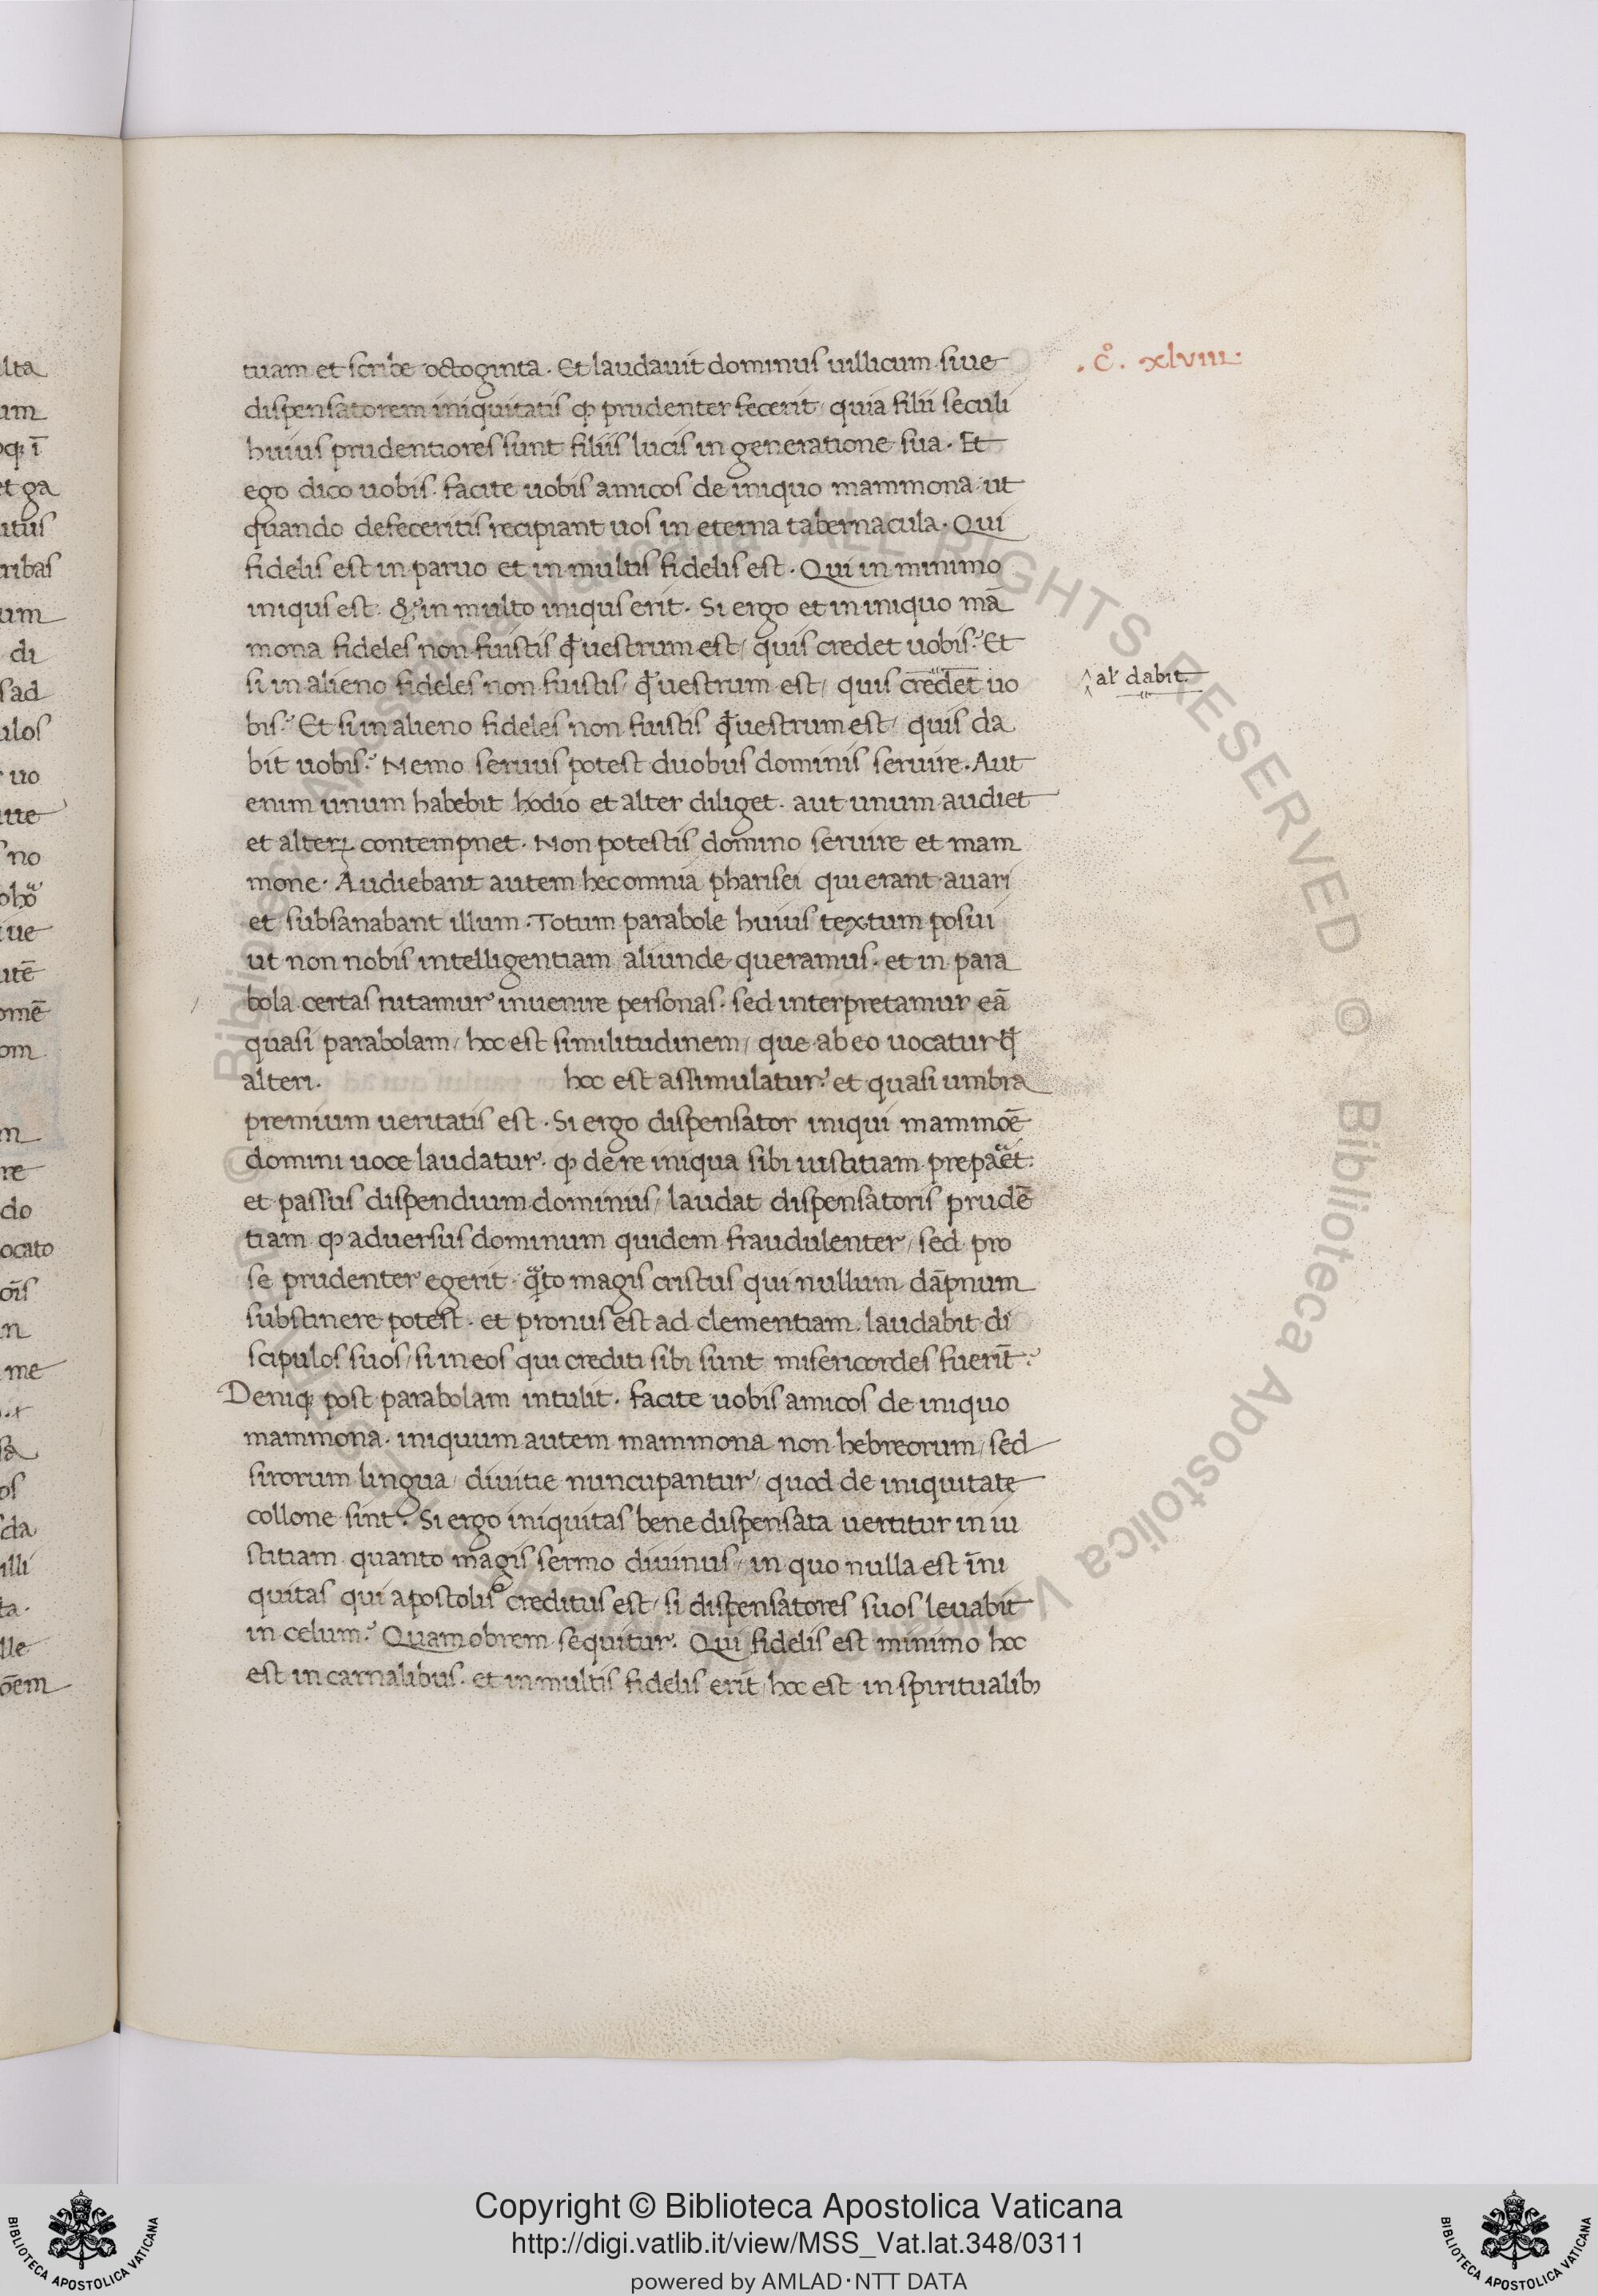 lta
um
oq; ī
et ga
itus
ribas
um
di
sad
ulos
uo
tue
no
ue
utē
omē
om
m
re
do
ocato
oīs
n
me
sa
os
da
illi
ta.
lle
ōem
tuam et scribe octoginta. Et laudauit dominus uillicum siue
dispensatorem iniquitatis ꝙ prudenter fecerit/ quia filii seculi
huius prudentiores sunt filiis lucis in generatione sua. Et
ego dico uobis. facite uobis amicos de iniquo mammona ut
quando defeceritis recipiant uos in eterna tabernacula. Qui
fidelis est in paruo et in multis fidelis est. Qui in minimo
iniqus est: & in multo iniqus erit. Si ergo et in iniquo mā
mona fideles non fuistis qd uestrum est/ quis credet uobis? Et
si in alieno fideles non fuistis/ qd uestrum est/ quis credet uo
bis? Et si in alieno fideles non fuistis qd uestrum est/ quis da
bit uobis? Nemo seruus potest duobus dominis seruire. Aut
enim unum habebit hodio et alter diliget. aut unum audiet
et alterꝝ contempnet. Non potestis domino seruire et mam
mone. Audiebant autem hec omnia pharisei qui erant auari
et subsanabant illum. Totum parabole huius textum posui
ut non nobis intelligentiam aliunde queramus. et in para
bola certas tutamur inuenire personas. sed interpretamur eā
quasi parabolam/ hoc est similitudinem/ que ab eo uocatur qd
alteri. hoc est assimulatur? et quasi umbra
premium ueritatis est. Si ergo dispensator iniqui mammōe
domini uoce laudatur. ꝙ de re iniqua sibi iustitiam prepaͣet:
et passus dispendium dominus/ laudat dispensatoris prudē
tiam ꝙ aduersus dominum quidem fraudulenter/ sed pro
se prudenter egerit. qͣto magis cristus qui nullum dāpnum
substinere potest. et pronus est ad clementiam. laudabit di
scipulos suos/ si in eos qui crediti sibi sunt misericordes fuerīt?
Deniq; post parabolam intulit. facite uobis amicos de iniquo
mammona. iniquum autem mammona non hebreorum/ sed
sirorum lingua/ diuitie nuncupantur/ quod de iniquitate
collone sint? Si ergo iniquitas bene dispensata uertitur in iu
stitiam quanto magis sermo diuinus/ in quo nulla est īni
quitas qui apostolis creditus est/ si dispensatores suos leuabit
in celum? Quamobrem sequitur. Qui fidelis est minimo hoc
est in carnalibus. et in multis fidelis erit/ hoc est in spiritualibꝫ
.c̊. xlviii.
al' dabit.
© Biblioteca Apostolica Vaticana ALL RIGHTS RESERVED © Biblioteca Apostolica Vaticana
Copyright © Biblioteca Apostolica Vaticana
http://digi.vatlib.it/view/MSS_Vat.lat.348/0311
powered by AMLAD·NTT DATA
BIBLIOTECA APOSTOLICA VATICANA
BIBLIOTECA APOSTOLICA VATICANA